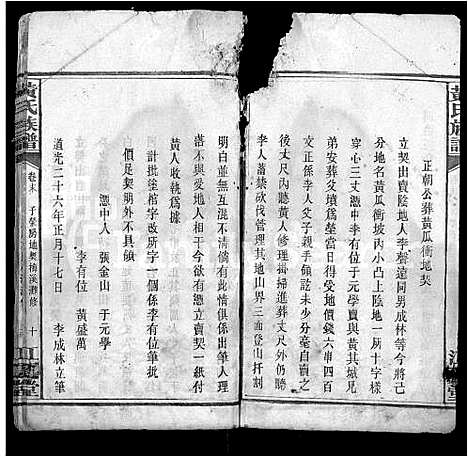 黃氏族譜
正朝公葬黃瓜衝地契
立契出賣陰地人李聲遠同男成林等今將
分地名黃瓜衝坡內小凸上陰地一所十字樣
穿心三丈憑中李有位于元學賣與黃其斌兄
弟安葬父墳爲塋當日得受地價錢六串四百
文正係李人父子親手領訖未少分文自賣之
後丈尺內聽黃人修理掛掃進葬丈尺外仍聽
李人蓄禁砍伐管理其地山界三面登山扦割
明白並無互混不清情弊此係李姓筆人理
落不與受地人相干今欲有憑立賣契一紙付
黃人收執爲據
計批筮棺字改所字一個係李有位筆批
價足契明外不具領
憑中人 張金山 于元學
李有位 黃盛萬
道光二十六年正月十七日 李成林立筆
黃氏族譜
卷末 子榮房地契楠溪灘修 十